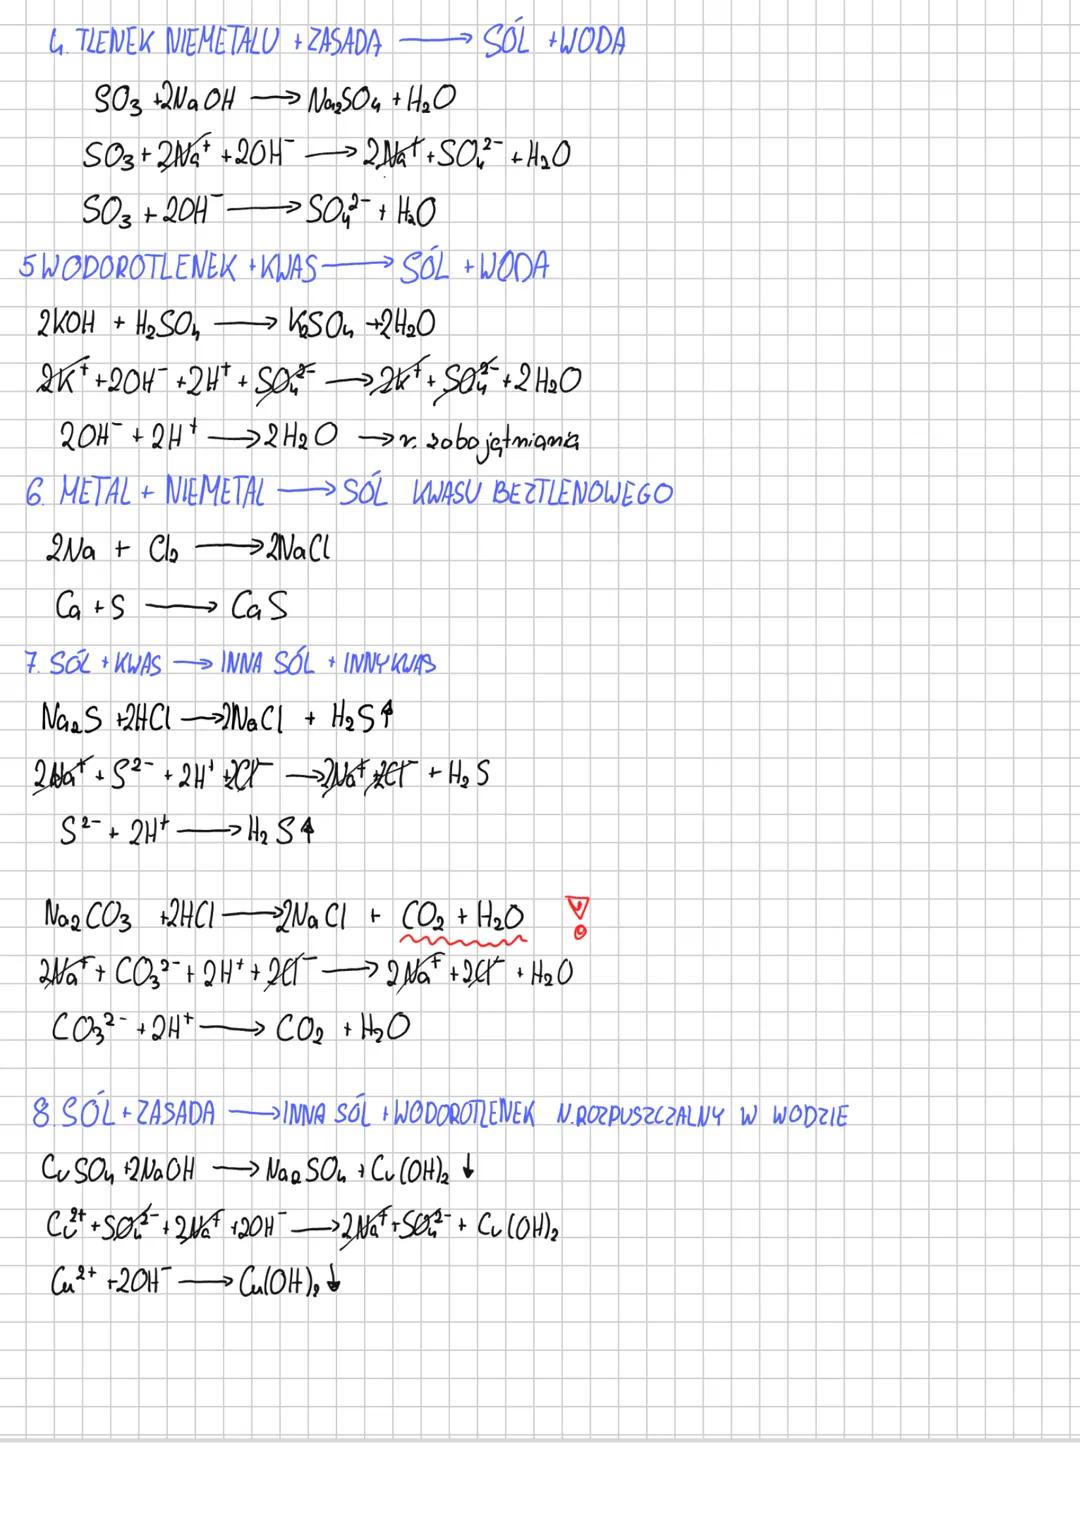 4. TLENEK NIEMETALU + ZASADA ⟶ SÓL + WODA
SO₃ + 2NaOH ⟶ Na₂SO₄ + H₂O
SO₃ + 2Na⁺ + 2OH⁻ ⟶ 2Na⁺ + SO₄²⁻ + H₂O
SO₃ + 2OH⁻ ⟶ SO₄²⁻ + H₂O
5 WODOROTLENEK + KWAS ⟶ SÓL + WODA
2KOH + H₂SO₄ ⟶ K₂SO₄ + 2H₂O
2K⁺ + 2OH⁻ + 2H⁺ + SO₄²⁻ ⟶ 2K⁺ + SO₄²⁻ + 2H₂O
2OH⁻ + 2H⁺ ⟶ 2H₂O → r. zobojętniania
6. METAL + NIEMETAL ⟶ SÓL KWASU BEZTLENOWEGO
2Na + Cl₂ ⟶ 2NaCl
Ca + S ⟶ CaS
7. SÓL + KWAS ⟶ INNA SÓL + INNY KWAS
Na₂S + 2HCl ⟶ 2NaCl + H₂S↑
2Na⁺ + S²⁻ + 2H⁺ + 2Cl⁻ ⟶ 2Na⁺ + 2Cl⁻ + H₂S
S²⁻ + 2H⁺ ⟶ H₂S↑
Na₂CO₃ + 2HCl ⟶ 2NaCl + CO₂ + H₂O !
2Na⁺ + CO₃²⁻ + 2H⁺ + 2Cl⁻ ⟶ 2Na⁺ + 2Cl⁻ + H₂O
CO₃²⁻ + 2H⁺ ⟶ CO₂ + H₂O
8. SÓL + ZASADA ⟶ INNA SÓL + WODOROTLENEK N.ROZPUSZCZALNY W WODZIE
CuSO₄ + 2NaOH ⟶ Na₂SO₄ + Cu(OH)₂ ↓
Cu²⁺ + SO₄²⁻ + 2Na⁺ + 2OH⁻ ⟶ 2Na⁺ + SO₄²⁻ + Cu(OH)₂
Cu²⁺ + 2OH⁻ ⟶ Cu(OH)₂ ↓